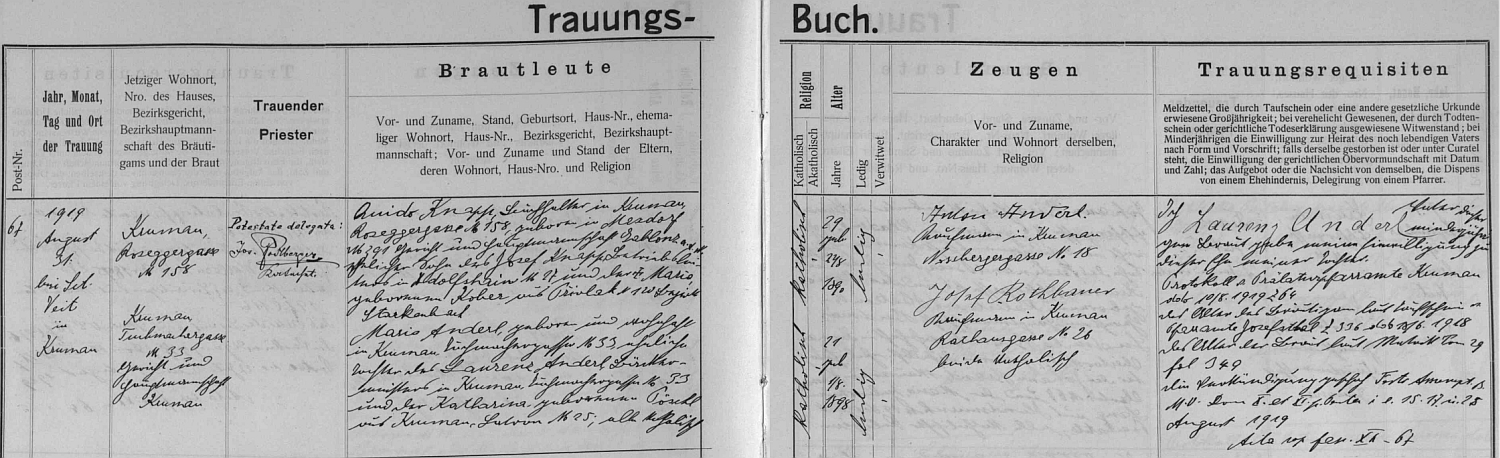 Trauungs-
Buch.
Post-Nr.
Jahr, Monat,
Tag und Ort
der Trauung
Jetziger Wohnort,
Nro. des Hauses,
Bezirksgericht,
Bezirkshauptmann-
schaft des Bräuti-
gams und der Braut
Trauender
Priester
Brautleute
Vor- und Zuname, Stand, Geburtsort, Haus-Nr., ehema-
liger Wohnort, Haus-Nr., Bezirksgericht, Bezirkshaupt-
mannschaft; Vor- und Zuname und Stand der Eltern,
deren Wohnort, Haus-Nro. und Religion
Religion
Katholisch
Akatholisch
Alter
Jahre
Ledig
Verwitwet
Zeugen
Vor- und Zuname,
Charakter und Wohnort derselben,
Religion
Trauungsrequisiten
Meldzettel, die durch Taufschein oder eine andere gesetzliche Urkunde
erwiesene Großjährigkeit; bei verehelicht Gewesenen, der durch Todten-
schein oder gerichtliche Todeserklärung ausgewiesene Witwenstand; bei
Minderjährigen die Einwilligung zur Heirat des noch lebendigen Vaters
nach Form und Vorschrift; falls derselbe gestorben ist oder unter Curatel
steht, die Einwilligung der gerichtlichen Obervormundschaft mit Datum
und Zahl; das Aufgebot oder die Nachsicht von demselben, die Dispens
von einem Ehehindernis, Delegirung von einem Pfarrer.
67
1919
August
31.
bei Sct.
Veit
in
Krumau
Krumau,
Roseggergasse
№ 158
Krumau,
Tuchmachergasse
№ 33
Gericht und
Hauptmannschaft
Krumau
Potestate delegata:
Jos.
Quido Knapp, Buchhalter in Krumau,
Roseggergasse № 158, geboren in
№ 291 Gericht und Hauptmannschaft Gablonz a.
ehelicher Sohn des Josef Knapp, Betriebslei-
ters in № 27 und der Maria
geborenen Kober aus № 120 Bezirk
Starkenbach
Maria Anderl, geboren und wohnhaft
in Krumau Tuchmachergasse № 33 eheliche
Tochter des Laurenz Anderl, Bäcker-
meisters in Krumau, Tuchmachergasse № 33
und der Katharina geborenen
aus Krumau, № 25, alle katholisch
katholisch
29
geb
24/8
1890
ledig
katholisch
21
geb
1/8.
1898
ledig
Anton Anderl.
Kaufmann in Krumau
№ 18
Josef Rothbauer
Kaufmann in Krumau
Rathausgasse № 26
beide katholisch
Ich Laurenz Anderl Vater dieser
minderjähri-
gen Braut gebe meine Einwilligung zu
dieser Ehe meiner Tochter.
Protokoll Prälaturpfarramte Krumau
ddo 10/8. 1919 Z 64
das Alter des Bräutigam laut Taufschein
Pfarramte Josefsthal Z 336 ddo 1918
das Alter der Braut laut Matrik Tom 29
fol 349
die Verkündigung geschah
M.V. Dom X. et XI. p. Pent. i. e. 15. 17. u. 25
August 1919
Acta 67